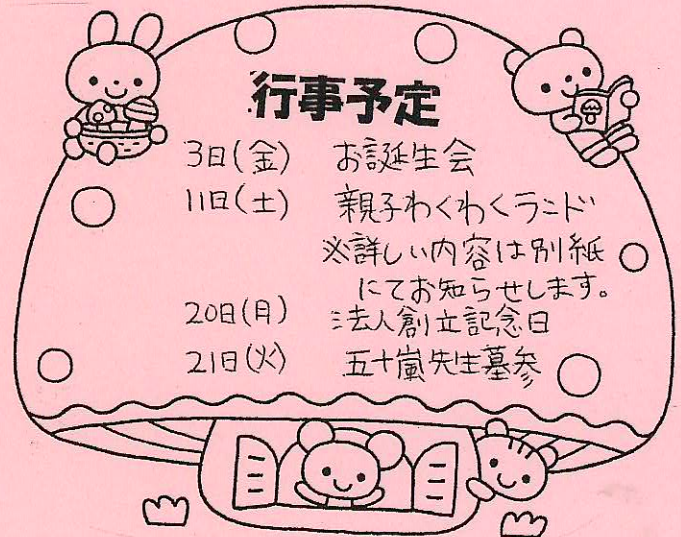 行事予定
3日(金) お誕生会
11日(土) 親子わくわくランド
※詳しい内容は別紙
にてお知らせします。
20日(月) 法人創立記念日
21日(火) 五十嵐先生墓参